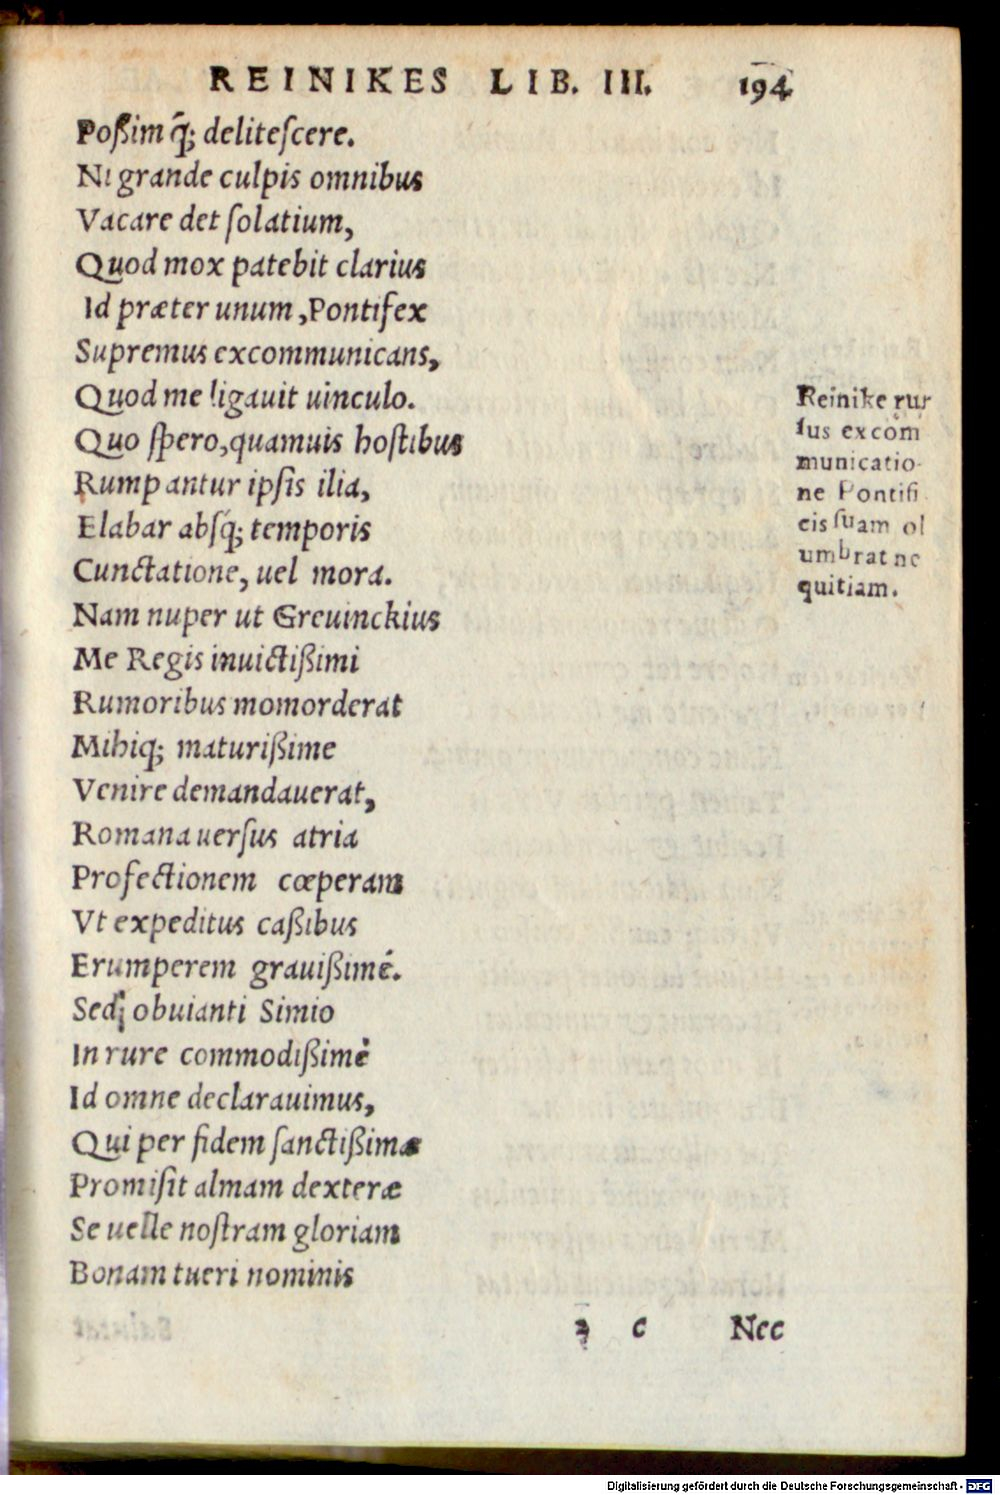 REINIKES LIB. III. 194
Poßim q́; delitescere.
Ni grande culpis omnibus
Vacare det ſolatium,
Quod mox patebit clarius
Id præter unum, Pontifex
Supremus excommunicans,
Quod me ligauit uinculo.
Quo ſpero, quamuis hoſtibus
Rumpantur ipſis ilia,
Elabar abſq́; temporis
Cunctatione, uel mora.
Nam nuper ut Greuinckius
Me Regis inuictißimi
Rumoribus momorderat
Mihiq; maturißime
Venire demandauerat,
Romana uerſus atria
Profectionem cœperam
Vt expeditus caßibus
Erumperem grauißimè.
Sed obuianti Simio
In rure commodißimè
Id omne declarauimus,
Qui per fidem ſanctißimæ
Promiſit almam dexteræ
Se uelle noſtram gloriam
Bonam tueri nominis
2 c Nec
Reinike rur
ſus excōm
municatio
ne Pontifi
cis ſuam ol
umbrat ne
quitiam.
Digitalisierung gefördert durch die Deutsche Forschungsgemeinschaft - DFG